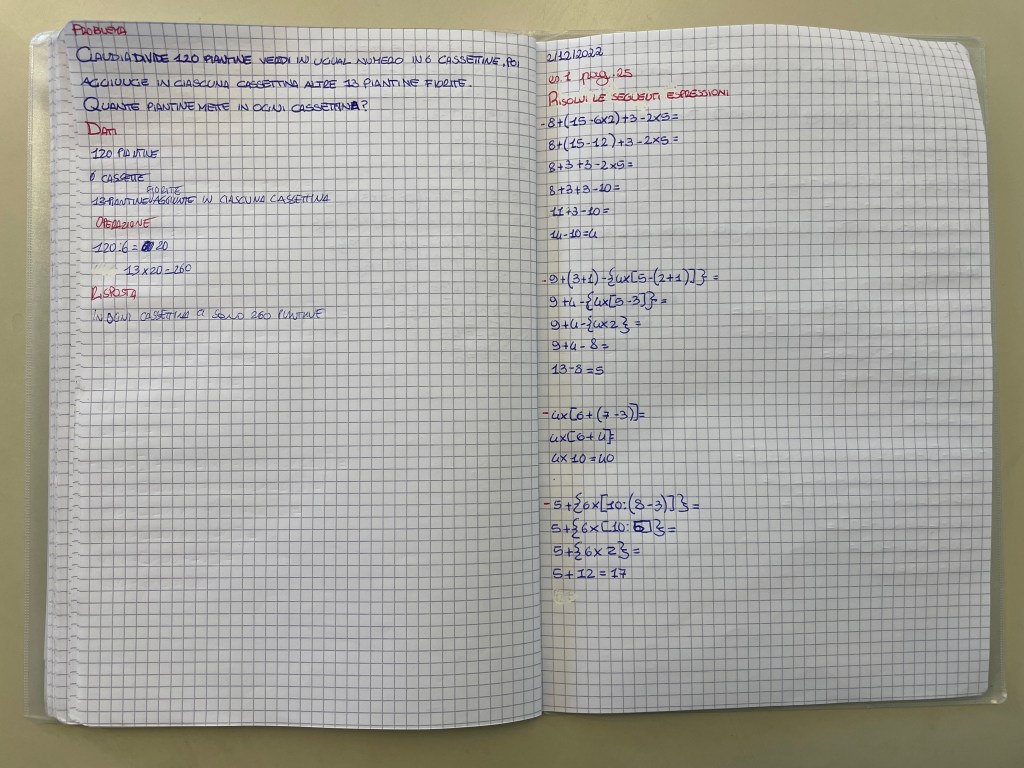 PROBLEMA
CLAUDIA DIVIDE 120 PIANTINE VERDI IN UGUAL NUMERO IN 6 CASSETTINE. POI
AGGIUNGE IN CIASCUNA CASSETTINA ALTRE 13 PIANTINE FIORITE.
QUANTE PIANTINE METTE IN OGNI CASSETTINA?
DATI
120 PIANTINE
6 CASSETTE
FIORITE
13 PIANTINE AGGIUNTE IN CIASCUNA CASSETTINA
OPERAZIONE
120:6= 20
13×20=260
RISPOSTA
IN OGNI CASSETTINA CI SONO 260 PIANTINE
2/12/2022
es.1 pag.25
RISOLVI LE SEGUENTI ESPRESSIONI
-8+(15-6×2)+3-2×5=
8+(15-12)+3-2×5=
8+3+3-2×5=
8+3+3-10=
11+3-10=
14-10=4
-9+(3+1)-{4×[5-(2+1)]}=
9+4-{4×[5-3]}=
9+4-{4×2}=
9+4-8=
13-8=5
-4×[6+(7-3)]=
4×[6+4]=
4×10=40
-5+{6×[10:(8-3)]}=
5+{6×[10:5]}=
5+{6×2}=
5+12=17